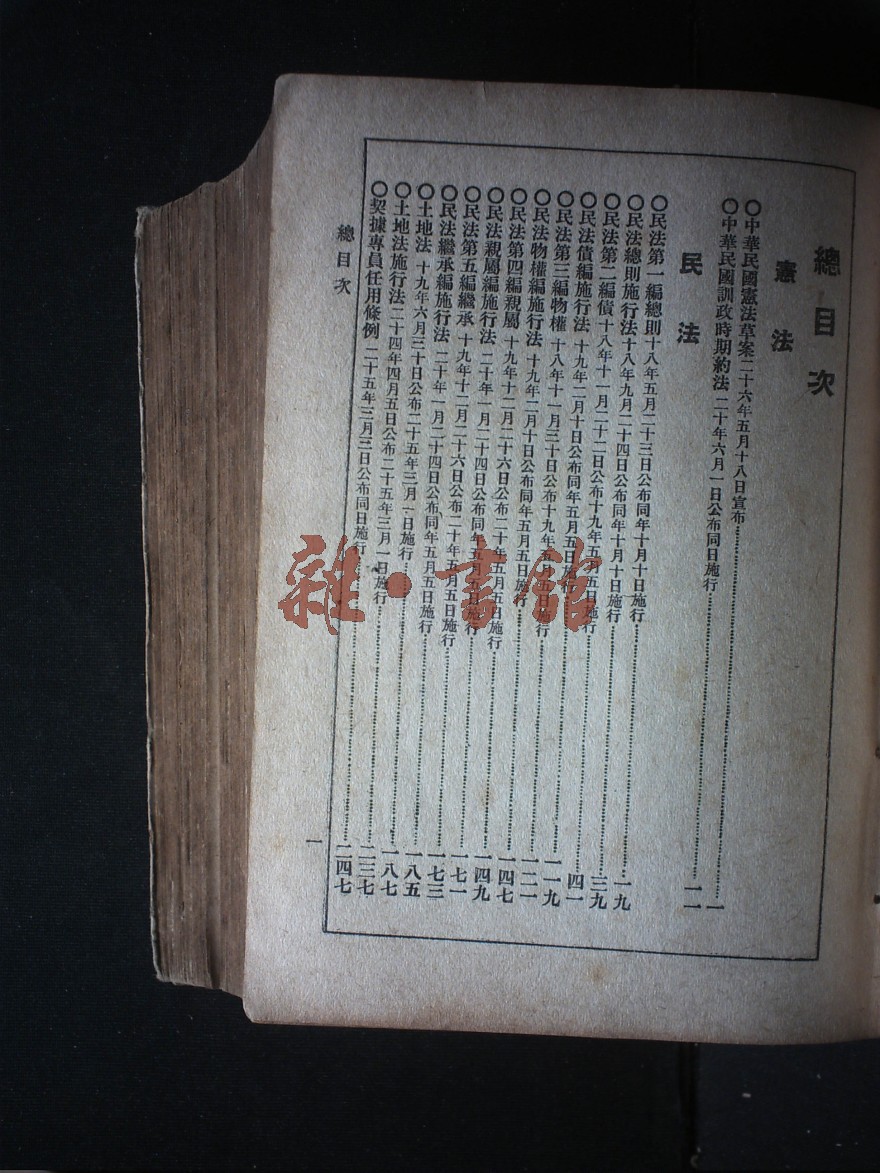 總目次
憲法
○中華民國憲法草案二十六年五月十八日宣布……一
○中華民國訓政時期約法二十年六月一日公布同日施行……一一
民法
○民法第一編總則十八年五月二十三日公布同年十月十日施行……一九
○民法總則施行法十八年九月二十四日公布同年十月十日施行……三九
○民法第二編債十八年十一月二十二日公布十九年五月五日施行……四一
○民法債編施行法十九年二月十日公布同年五月五日施行……一一九
○民法第三編物權十八年十一月三十日公布十九年五月五日施行……一二一
○民法物權編施行法十九年二月十日公布同年五月五日施行……一四七
○民法第四編親屬十九年十二月二十六日公布二十年五月五日施行……一四九
○民法親屬編施行法二十年一月二十四日公布同年五月五日施行……一七一
○民法第五編繼承十九年十二月二十六日公布二十年五月五日施行……一七三
○民法繼承編施行法二十年一月二十四日公布同年五月五日施行……一八五
○土地法十九年六月三十日公布二十五年三月一日施行……一八七
○土地法施行法二十四年四月五日公布二十五年三月一日施行……二三七
○契據專員任用條例二十五年三月三日公布同日施行……二四七
總目次
一
雜·書館